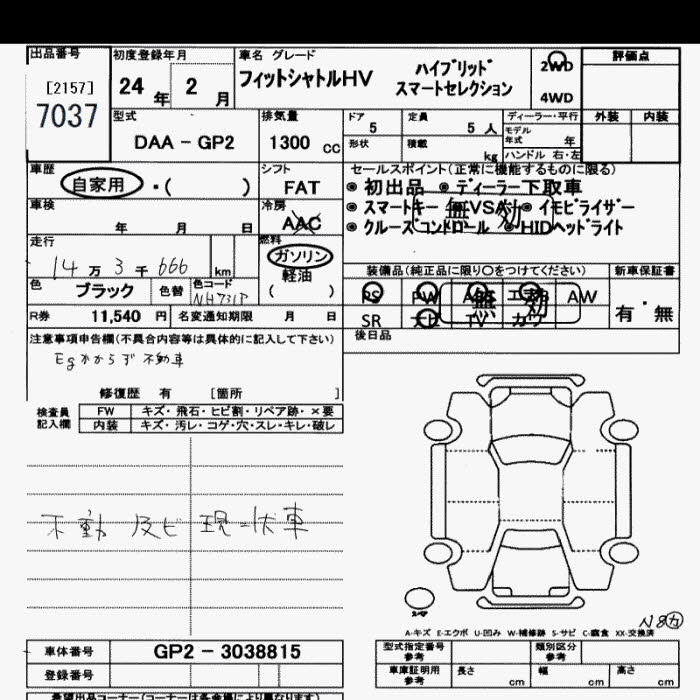 出品番号 初度登録年月 車名 グレード 評価点
[2157] 24年 2月 フィットシャトルHV ハイブリッド スマートセレクション 2WD
7037 4WD
型式 排気量 ドア 定員 ディーラー・平行 外装 内装
DAA - GP2 1300 cc 5 5人 モデル年式 年
形状 積載 kg ハンドル 右・左
車歴 シフト セールスポイント(正常に機能するものに限る)
自家用 ・( ) FAT ◎ 初出品 ◎ ディーラー下取車
車検 冷房 ◎ スマートキー ◎ VSA ◎ イモビライザー
年 月 日 AAC ◎ クルーズコントロール ◎ HIDヘッドライト
無効
走行 燃料
14万3千666 km ガソリン 装備品(純正品に限り〇をつけてください) 新車保証書
色 色替 色コード 軽油 PS PW AW 有・無
ブラック NH731P ( ) SR ナビ TV カワ
無効
R券 11,540 円 名変通知期限 月 日
注意事項申告欄(不具合内容等は具体的に記入して下さい) 後日品
Egかからず不動車
修復歴 有 [箇所 ]
検査員記入欄 FW キズ・飛石・ヒビ割・リペア跡・×要
内装 キズ・汚レ・コゲ・穴・スレ・キレ・破レ
不動 及ビ 現状車
A-キズ E-エクボ U-凹み W-補修跡 S-サビ C-腐食 XX-交換済
車体番号 GP2 - 3038815 型式指定番号 参考 類別区分 参考
登録番号 車庫証明用 参考 長さ cm 幅 cm 高さ cm
希望出品コーナー(コーナーは各会場により異なります)